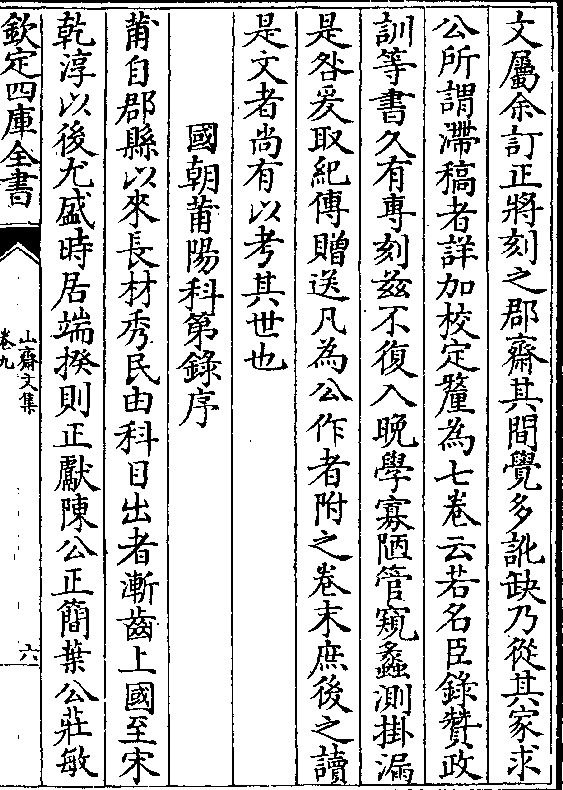 文屬余訂正將刻之郡齋其間覺多訛缺乃從其家求
公所謂滯稿者詳加校定釐為七卷云若名臣錄贊政
訓等書久有專刻茲不復入晚學寡陋管窺蠡測掛漏
是咎爰取紀傳贈送凡為公作者附之卷末庶後之讀
是文者尚有以考其世也
國朝莆陽科第錄序
莆自郡縣以來長材秀民由科目出者漸齒上國至宋
乾淳以後尤盛時居端揆則正獻陳公正簡葉公莊敏
欽定四庫全書
山齋文集
卷九
六